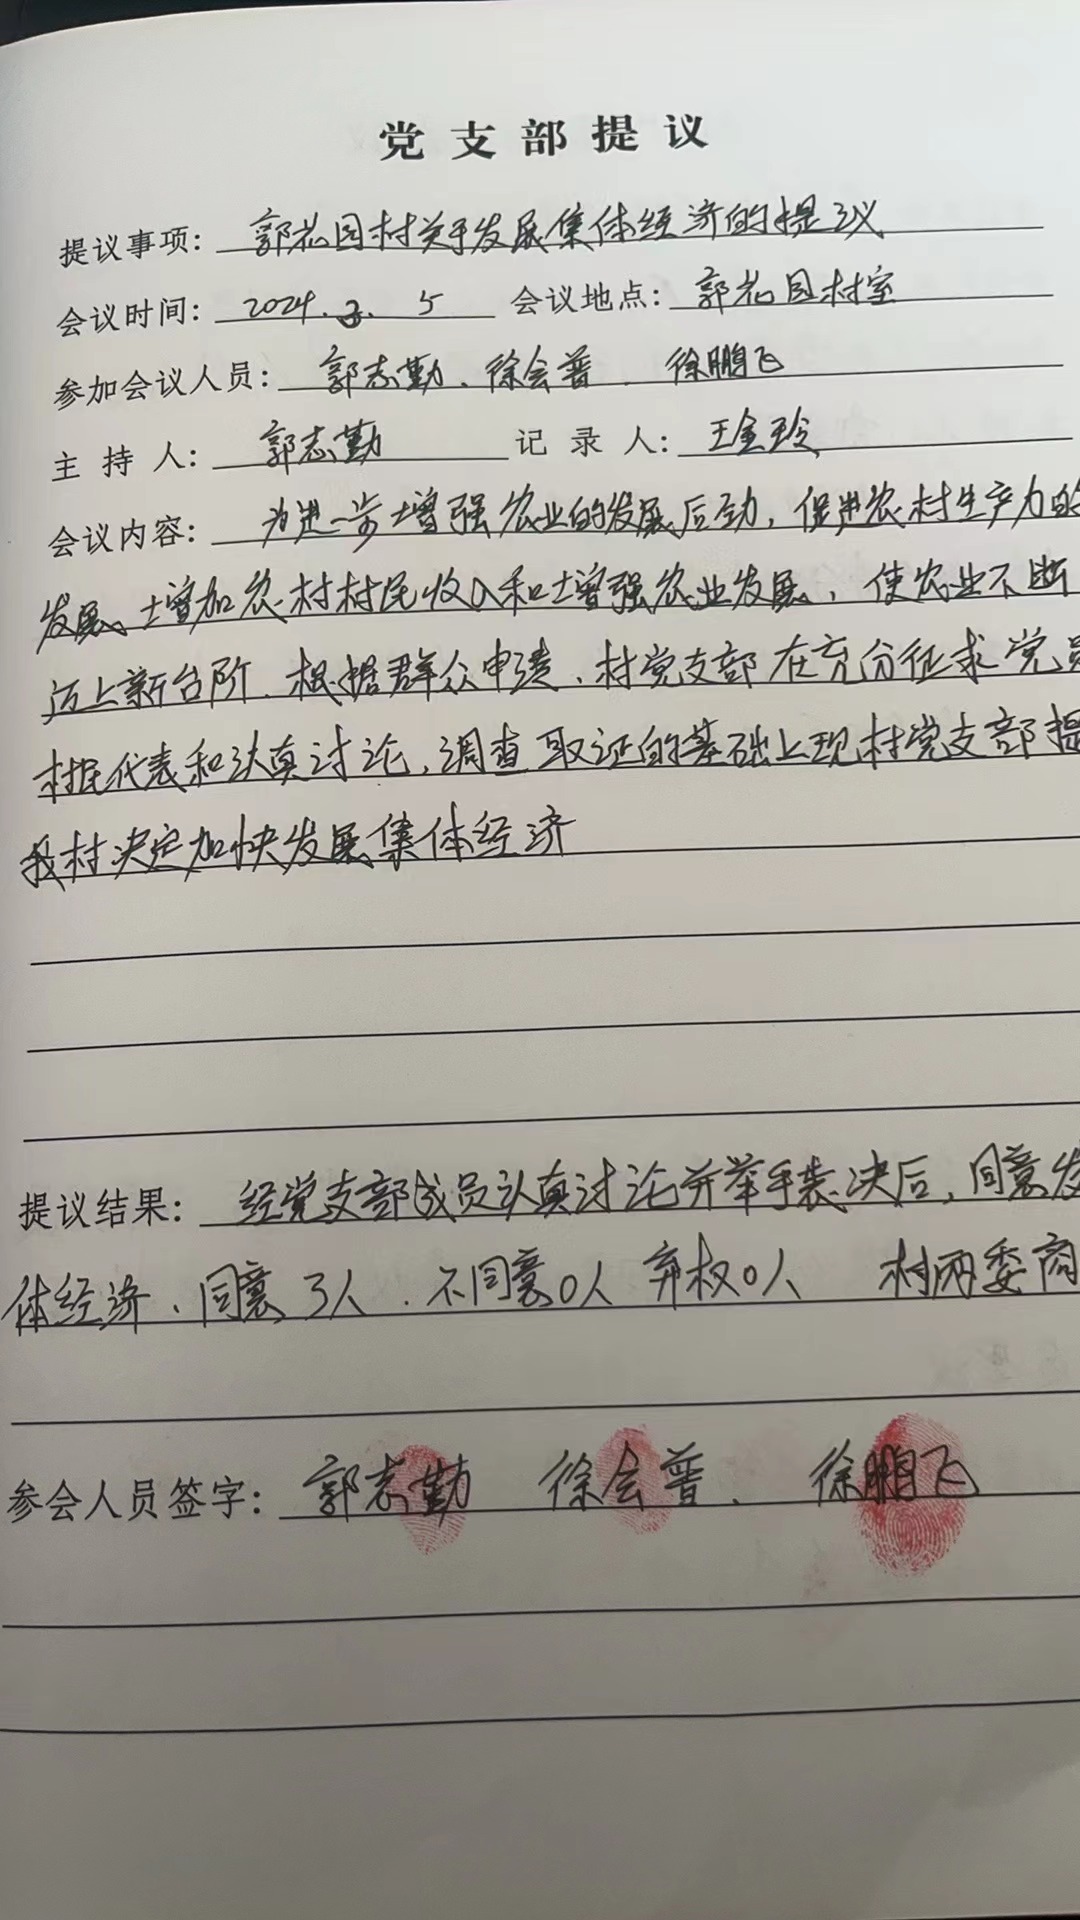 党支部提议
提议事项：郭花园村关于发展集体经济的提议
会议时间：2024.3.5 会议地点：郭花园村室
参加会议人员：郭志勤、徐会普、徐鹏飞
主持人：郭志勤 记录人：王金玲
会议内容：为进一步增强农业的发展后劲，促进农村生产力的
发展、增加农村村民收入和增强农业发展，使农业不断
迈上新台阶、根据群众申请、村党支部在充分征求党员
村民代表和认真讨论，调查取证的基础上现村党支部提
我村决定加快发展集体经济
提议结果：经党支部成员认真讨论并举手表决后，同意发
体经济、同意3人、不同意0人 弃权0人 村两委商
参会人员签字：郭志勤 徐会普、徐鹏飞